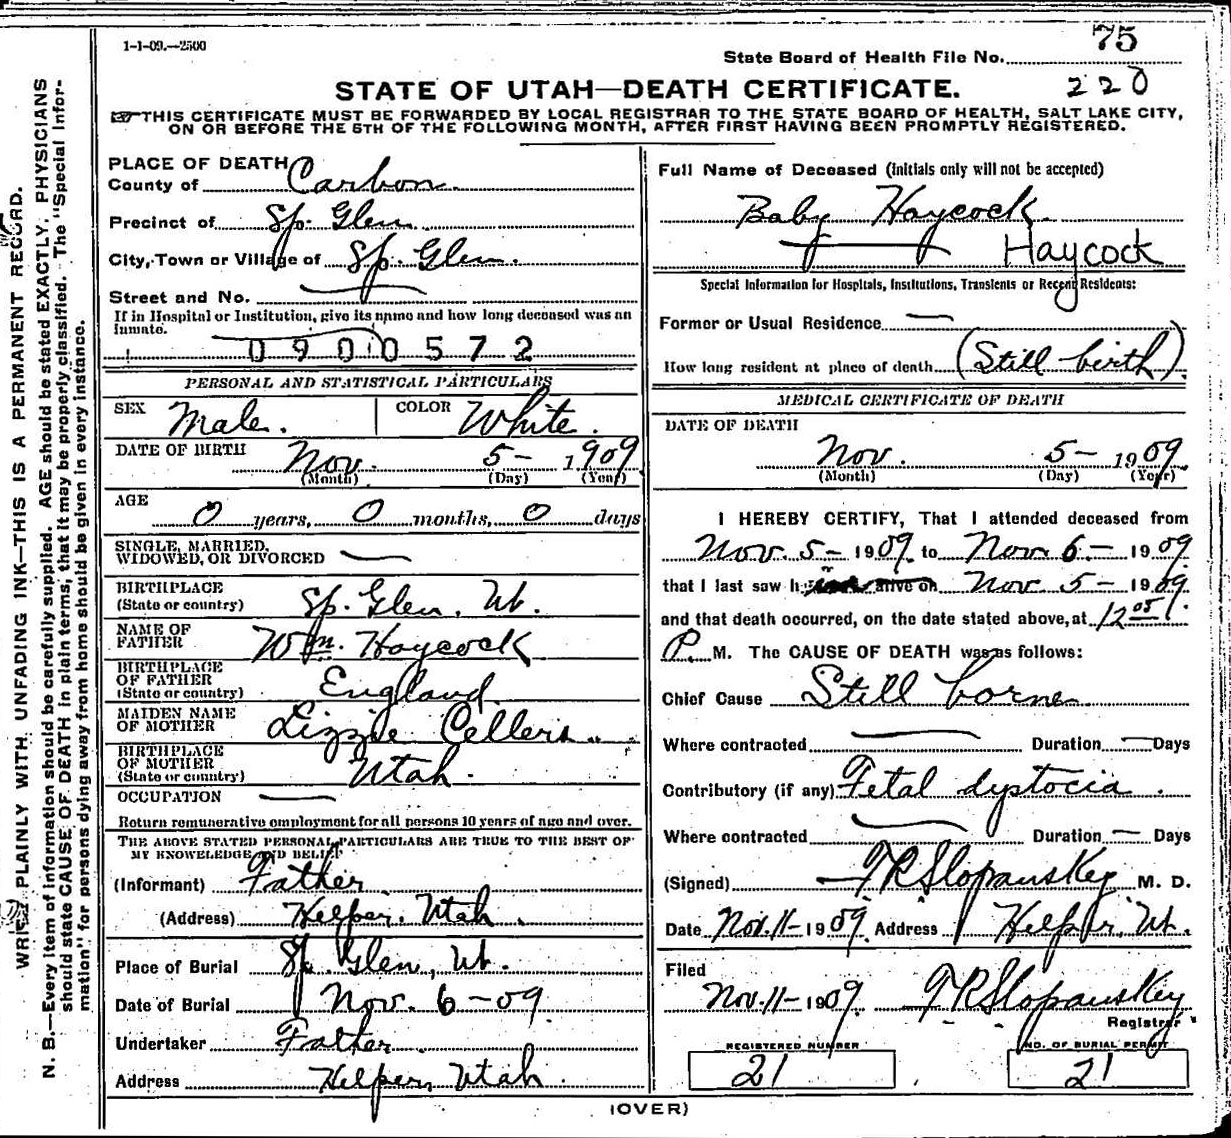 1-1-09.—2500
State Board of Health File No. 75
220
STATE OF UTAH—DEATH CERTIFICATE.
THIS CERTIFICATE MUST BE FORWARDED BY LOCAL REGISTRAR TO THE STATE BOARD OF HEALTH, SALT LAKE CITY,
ON OR BEFORE THE 5TH OF THE FOLLOWING MONTH, AFTER FIRST HAVING BEEN PROMPTLY REGISTERED.
WRITE PLAINLY WITH UNFADING INK—THIS IS A PERMANENT RECORD.
N. B.—Every item of information should be carefully supplied. AGE should be stated EXACTLY. PHYSICIANS
should state CAUSE OF DEATH in plain terms, that it may be properly classified. The "Special Infor-
mation" for persons dying away from home should be given in every instance.
PLACE OF DEATH
County of Carbon
Precinct of Sp. Glen
City, Town or Village of Sp. Glen.
Street and No. —
If in Hospital or Institution, give its name and how long deceased was an
Inmate.
0900572
PERSONAL AND STATISTICAL PARTICULARS
SEX Male. COLOR White.
DATE OF BIRTH Nov. 5- 1909
(Month) (Day) (Year)
AGE
0 years, 0 months, 0 days
SINGLE, MARRIED,
WIDOWED, OR DIVORCED —
BIRTHPLACE
(State or country) Sp. Glen, Ut.
NAME OF
FATHER Wm. Haycock
BIRTHPLACE
OF FATHER
(State or country) England
MAIDEN NAME
OF MOTHER Lizzie Cellers
BIRTHPLACE
OF MOTHER
(State or country) Utah.
OCCUPATION —
Return remunerative employment for all persons 10 years of age and over.
THE ABOVE STATED PERSONAL PARTICULARS ARE TRUE TO THE BEST OF
MY KNOWLEDGE AND BELIEF
(Informant) Father
(Address) Helper, Utah.
Place of Burial Sp. Glen, Ut.
Date of Burial Nov. 6-09
Undertaker Father
Address Helper, Utah.
Full Name of Deceased (initials only will not be accepted)
Baby Haycock
Haycock
Special Information for Hospitals, Institutions, Transients or Recent Residents:
Former or Usual Residence —
How long resident at place of death (Still birth)
MEDICAL CERTIFICATE OF DEATH
DATE OF DEATH
Nov. 5- 1909
(Month) (Day) (Year)
I HEREBY CERTIFY, That I attended deceased from
Nov. 5- 1909 to Nov. 6- 1909
that I last saw h alive on Nov. 5- 1909
and that death occurred, on the date stated above, at 12 05
P. M. The CAUSE OF DEATH was as follows:
Chief Cause Still borne
Where contracted — Duration — Days
Contributory (if any) Fetal dystocia.
Where contracted — Duration — Days
(Signed) F R Slopanskey M. D.
Date Nov. 11- 1909 Address Helper, Ut.
Filed
Nov. 11- 1909 F R Slopanskey
Registrar
REGISTERED NUMBER
21
NO. OF BURIAL PERMIT
21
(OVER)